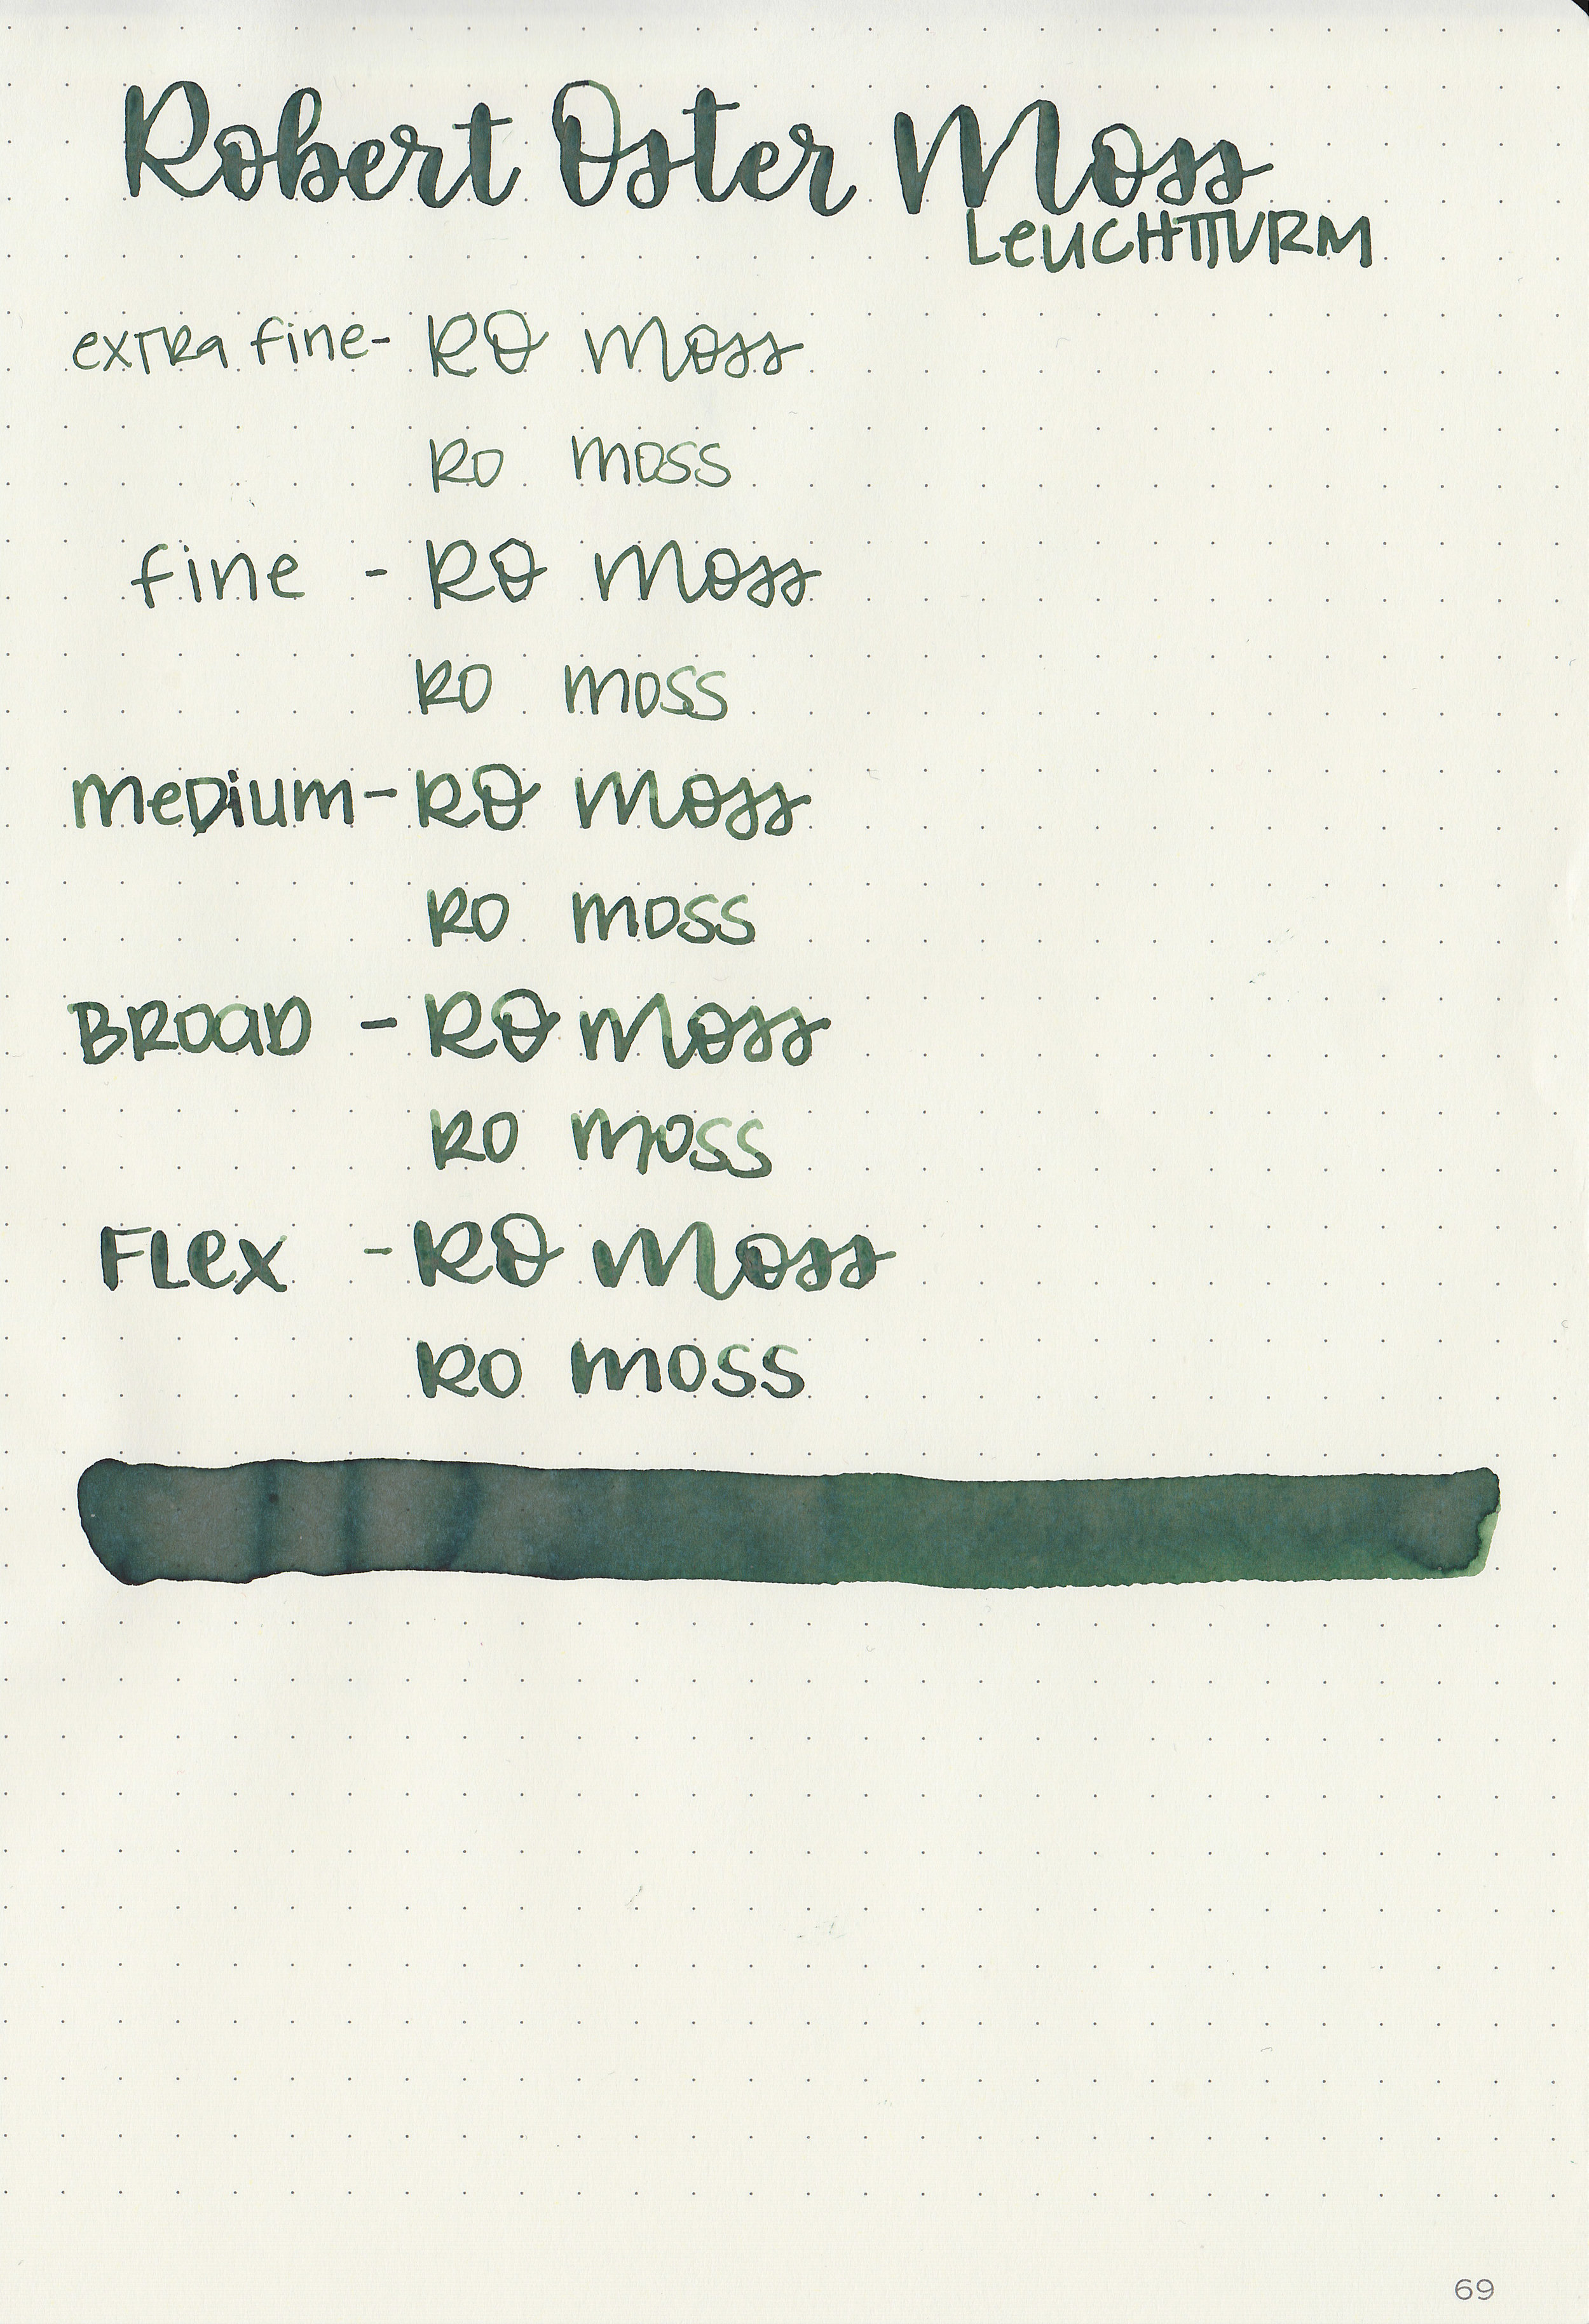 Robert Oster Moss
LeUCHTTURM
exTRa fine- RO Moss
RO moss
fine - RO Moss
RO moss
meDium - RO Moss
RO moss
BROaD - RO Moss
RO moss
FLex - RO Moss
RO moss
69